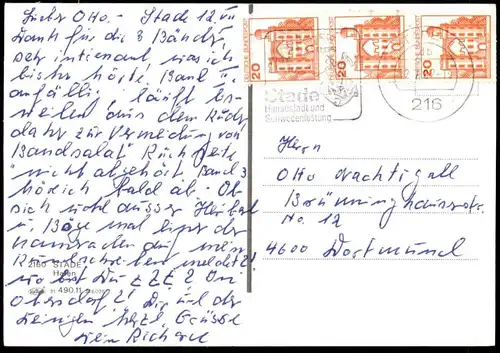 Lieber Otto. - Stade 12. VII
Dank für die 3 Bänder,
sehr interessant, was ich
bisher hörte. Band "2"
anfällig; läuft bis-
weilen aus dem Ruder
daher zur Vermeidung von
"Bandsalat" Rückseite
"nicht abgehört Band 3
höre ich bald ab. - Ob
sich nicht ausser
u. mal einer der
Kameraden auf mein
Rundschreiben meldet?!
wo bist Du ZZt? In
Oberstdorf? Dir und der
Deinigen herzl. Grüsse
Dein Richard
2160 STADE
Hafen
21 490.11
DEUTSCHE BUNDESPOST
20
DEUTSCHE BUNDESPOST
20
DEUTSCHE BUNDESPOST
20
Stade
Hansestadt und
Schwedenfestung
216
Herrn
Otto Nachtigall
Brünninghauserstr.
No. 12
4600 Dortmund